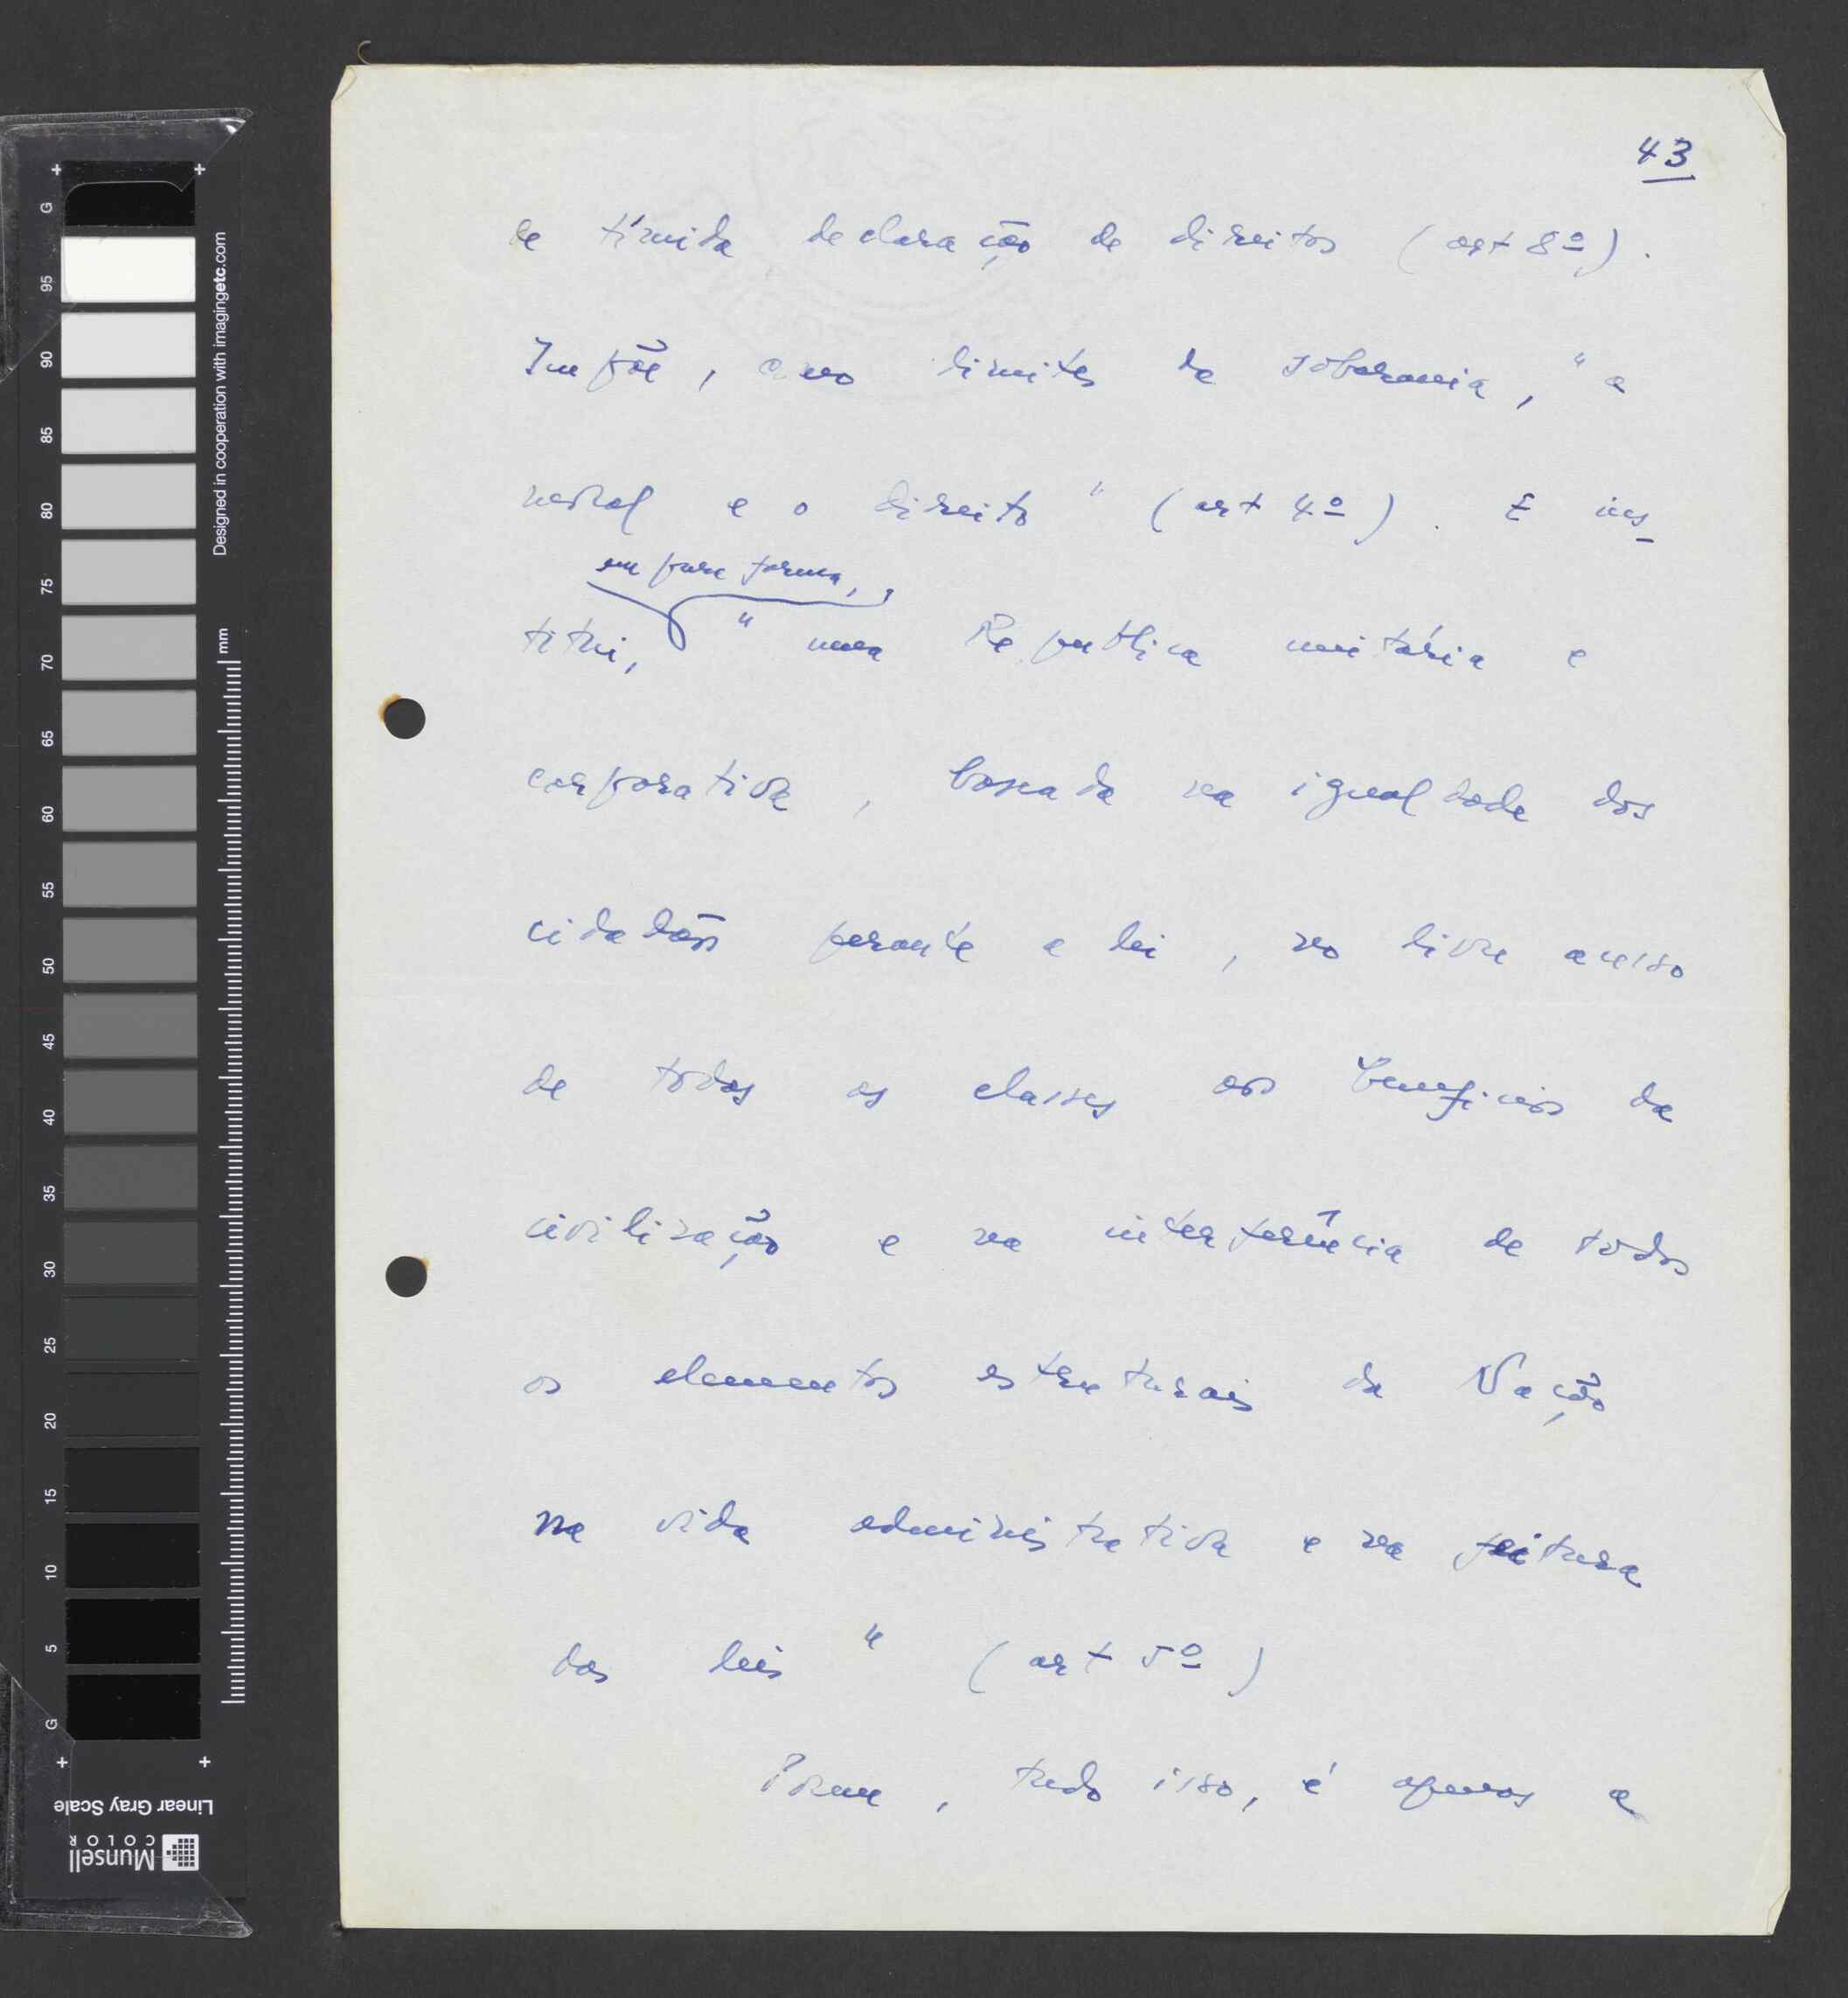 43
de tímida declaração de direitos (art 8º).
Impõe, como limites da soberania, "a
moral e o direito" (art 4º). E ins-
em pura forma,
titui, "uma Republica unitária e
corporativa, baseada na igualdade dos
cidadãos perante a lei, no livre acesso
de todas as classes aos beneficios da
civilização e na interferência de todos
os elementos estruturais da Nação
na vida administrativa e na feitura
das leis" (art 5º)
Porem, tudo isso, é apenas a
G
95
90
85
80
75
70
65
60
55
50
45
40
35
30
25
20
15
10
5
G
Designed in cooperation with imagingetc.com
mm
Linear Gray Scale
Munsell
COLOR